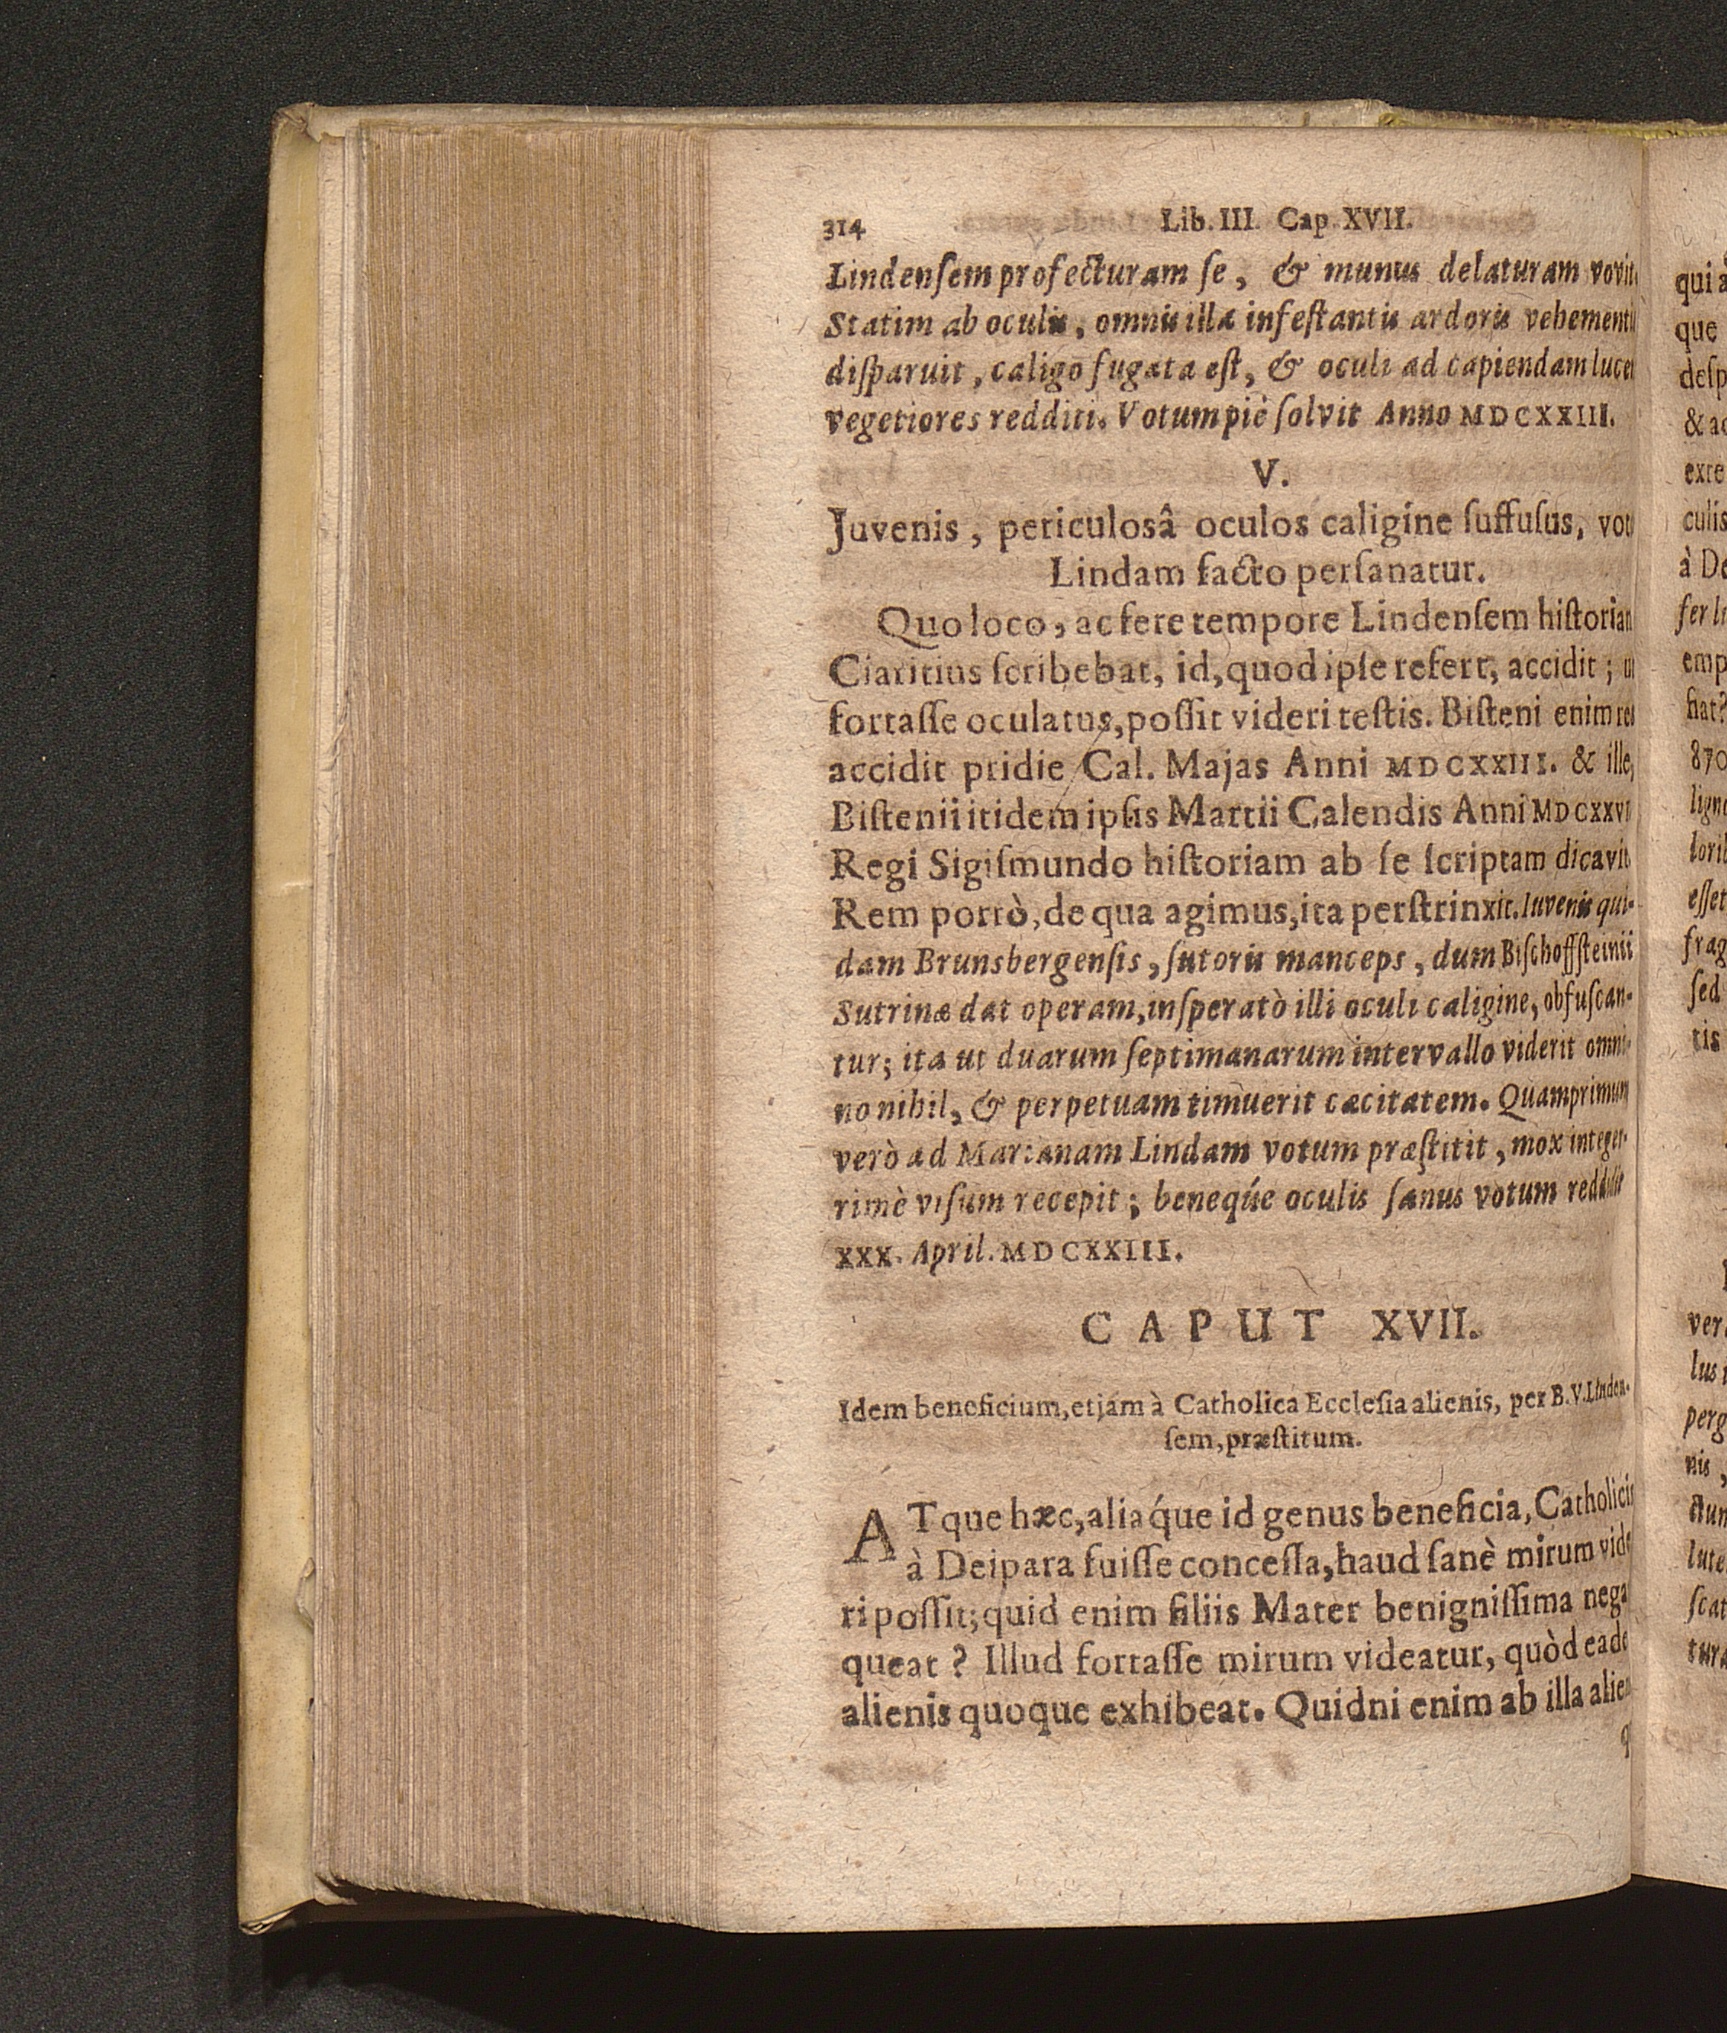 314 Lib. III. Cap. XVII.
Lindenſem profecturam ſe, & munus delaturam vovit
Statim ab oculis, omnis illa infeſtantis ardoris vehementi
diſparuit, caligo fugata eſt, & oculi ad capiendam luce
vegetiores redditi. Votum piè ſolvit Anno MDCXXIII.
V.
Juvenis, periculosâ oculos caligine ſuffuſus, vot
Lindam facto perſanatur.
Quo loco, ac fere tempore Lindenſem hiſtorian
Ciaritius ſcribebat, id, quod ipſe refert, accidit; ut
fortaſſe oculatus, poſſit videri teſtis. Biſteni enim res
accidit pridie Cal. Majas Anni MDCXXIII. & ille,
Biſtenii itidem ipſis Martii Calendis Anni MDCXXVI
Regi Sigiſmundo hiſtoriam ab ſe ſcriptam dicavit.
Rem porrò, de qua agimus, ita perſtrinxit. Iuvenis qui-
dam Brunsbergenſis, ſutoris manceps, dum Biſchoffſteinii
Sutrinæ dat operam, inſperatò illi oculi caligine, obfuſcan-
tur; ita ut duarum ſeptimanarum intervallo viderit omni-
no nihil, & perpetuam timuerit cæcitatem. Quamprimum
verò ad Marianam Lindam votum præſtitit, mox integer-
rimè viſum recepit; beneqúe oculis ſanus votum reddidit
XXX. April. MDCXXIII.
CAPUT XVII.
Idem beneficium, etjám à Catholica Eccleſia alienis, per B. V. Linden-
ſem, præſtitum.
ATque hæc, aliaq́ue id genus beneficia, Catholicis
à Deipara fuiſſe conceſſa, haud ſanè mirum vide
ri poſſit; quid enim filiis Mater benigniſſima nega
queat? Illud fortaſſe mirum videatur, quòd eade
alienis quoque exhibeat. Quidni enim ab illa alien
q
qui à
que
deſp
& ac
exte
culis
à De
fer
emp
fiat?
870
ligno
lorib
eſſet
frag
ſed
tis
ver
lus
perg
nis,
ctun
lute
ſcat
tura